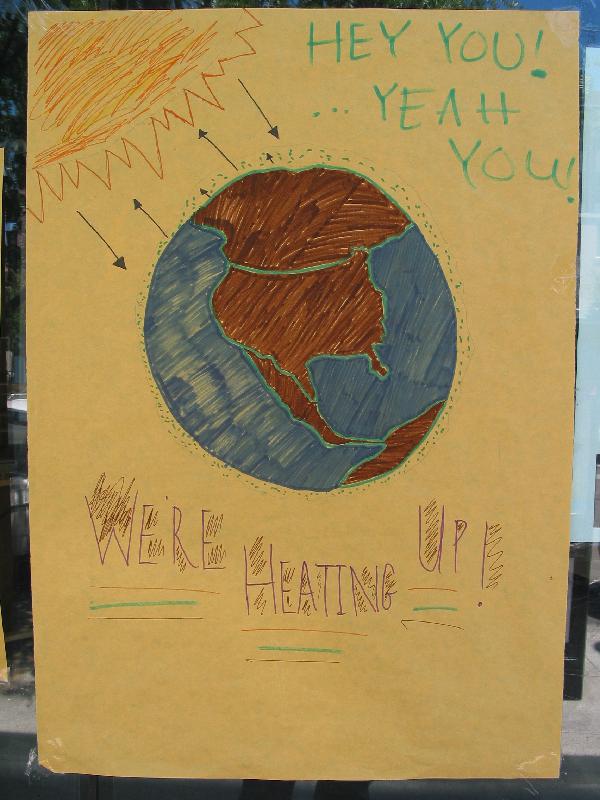 HEY YOU!
... YEAH
YOU!
WE'RE
HEATING
UP!